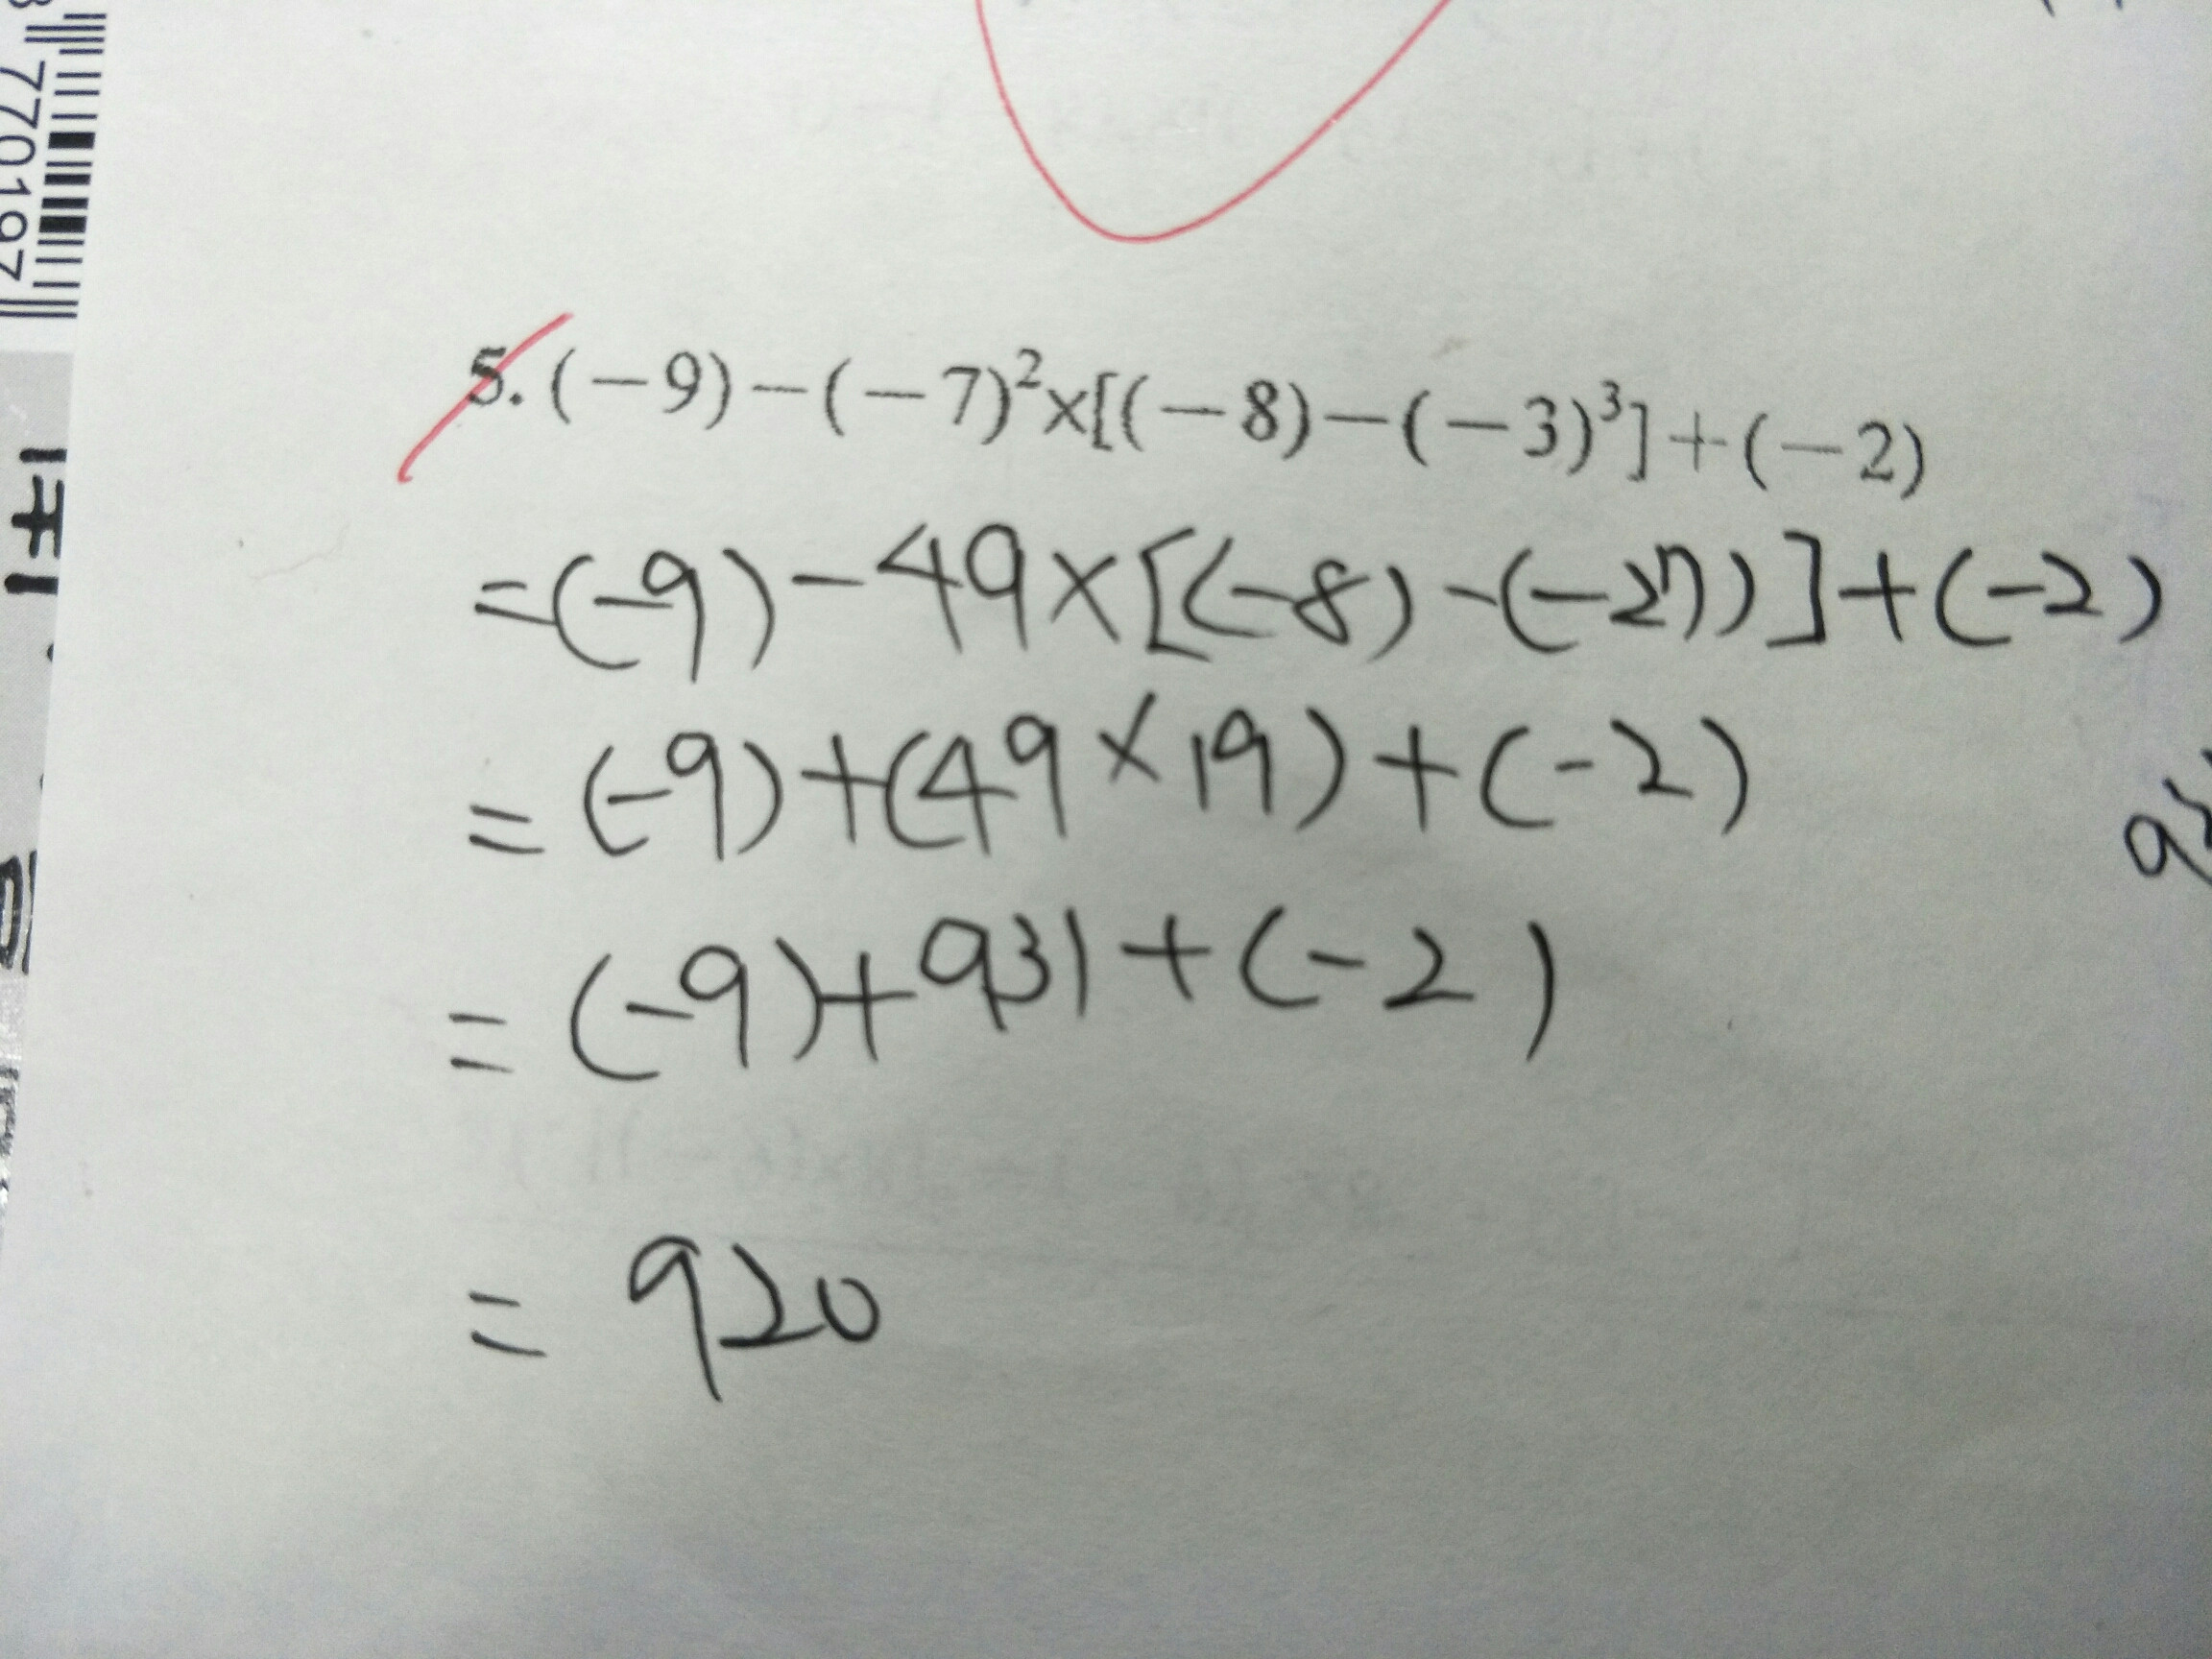 770197
5. (－9)－(－7)²×[(－8)－(－3)³]＋(－2)
=(-9)-49×[(-8)-(-27)]+(-2)
=(-9)+(49×19)+(-2)
=(-9)+931+(-2)
=920